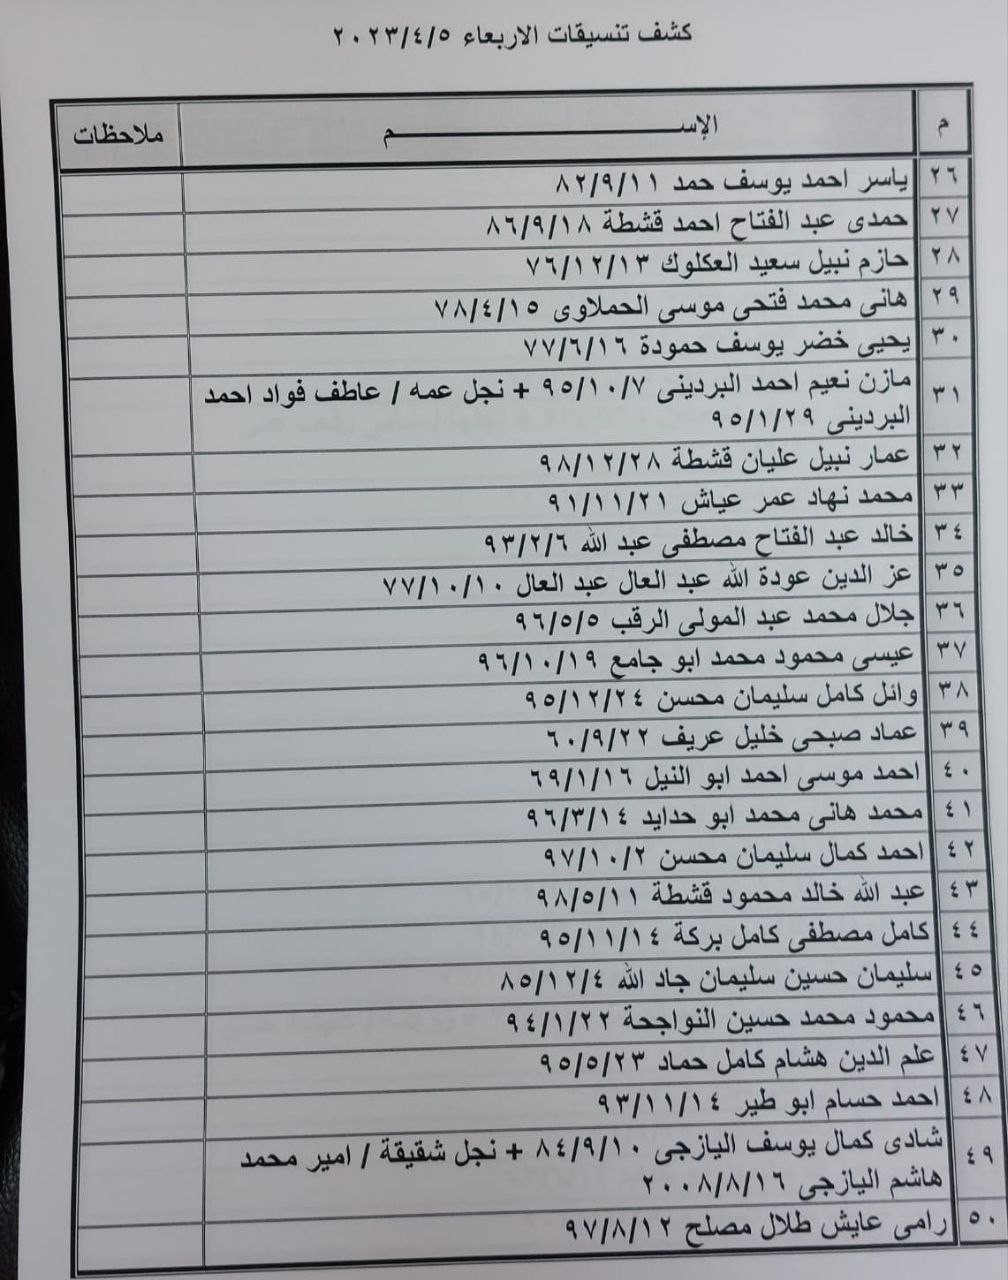 كشف تنسيقات الاربعاء ٢٠٢٣/٤/٥
م الإســـــــــــم ملاحظات
٢٦ ياسر احمد يوسف حمد ٨٢/٩/١١
٢٧ حمدى عبد الفتاح احمد قشطة ٨٦/٩/١٨
٢٨ حازم نبيل سعيد العكلوك ٧٦/١٢/١٣
٢٩ هانى محمد فتحى موسى الحملاوى ٧٨/٤/١٥
٣٠ يحيى خضر يوسف حمودة ٧٧/٦/١٦
٣١ مازن نعيم احمد البردينى ٩٥/١٠/٧ + نجل عمه / عاطف فواد احمد
البردينى ٩٥/١/٢٩
٣٢ عمار نبيل عليان قشطة ٩٨/١٢/٢٨
٣٣ محمد نهاد عمر عياش ٩١/١١/٢١
٣٤ خالد عبد الفتاح مصطفى عبد الله ٩٣/٢/٦
٣٥ عز الدين عودة الله عبد العال عبد العال ٧٧/١٠/١٠
٣٦ جلال محمد عبد المولى الرقب ٩٦/٥/٥
٣٧ عيسى محمود محمد ابو جامع ٩٦/١٠/١٩
٣٨ وائل كامل سليمان محسن ٩٥/١٢/٢٤
٣٩ عماد صبحى خليل عريف ٦٠/٩/٢٢
٤٠ احمد موسى احمد ابو النيل ٦٩/١/١٦
٤١ محمد هانى محمد ابو حدايد ٩٦/٣/١٤
٤٢ احمد كمال سليمان محسن ٩٧/١٠/٢
٤٣ عبد الله خالد محمود قشطة ٩٨/٥/١١
٤٤ كامل مصطفى كامل بركة ٩٥/١١/١٤
٤٥ سليمان حسين سليمان جاد الله ٨٥/١٢/٤
٤٦ محمود محمد حسين النواجحة ٩٤/١/٢٢
٤٧ علم الدين هشام كامل حماد ٩٥/٥/٢٣
٤٨ احمد حسام ابو طير ٩٣/١١/١٤
٤٩ شادى كمال يوسف اليازجى ٨٤/٩/١٠ + نجل شقيقة / امير محمد
هاشم اليازجى ٢٠٠٨/٨/١٦
٥٠ رامى عايش طلال مصلح ٩٧/٨/١٢